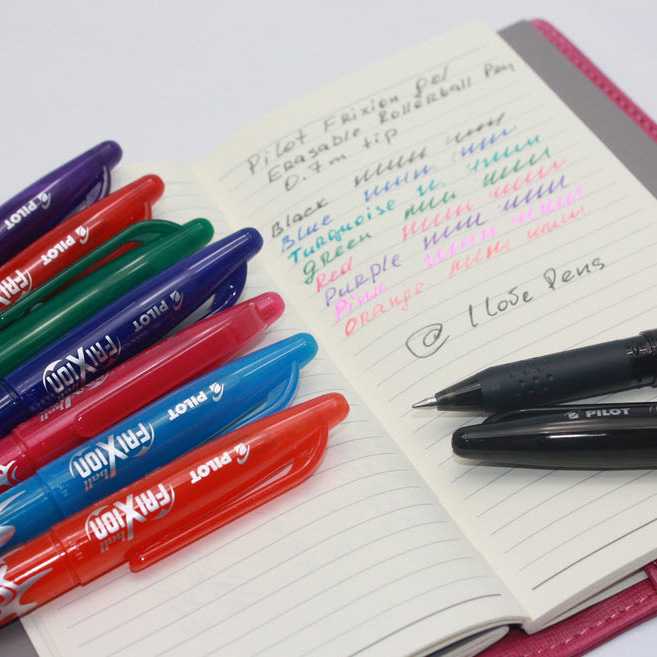 Pilot Frixion gel
Erasable Rollerball Pen
0.7m tip
Black
Blue
Turquoise
Green
Red
Purple
Pink
Orange
@ I love Pens
PILOT
PILOT
PILOT
PILOT
FRIXION ball
PILOT
FRIXION ball
PILOT
FRIXION ball
PILOT